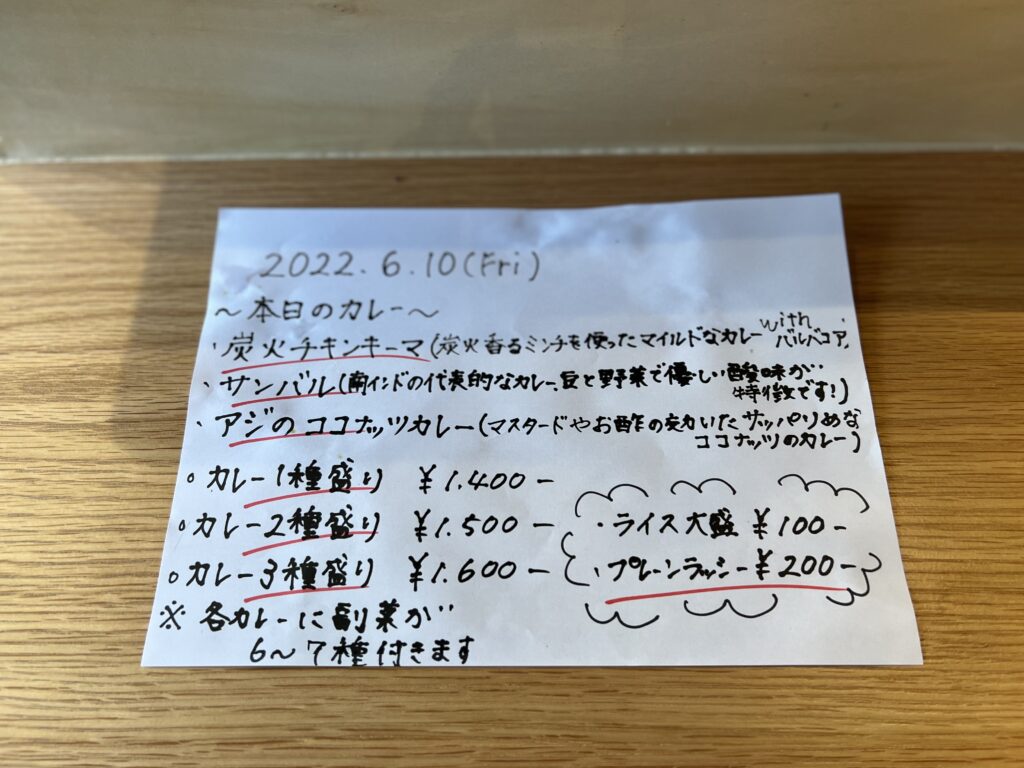 2022.6.10(Fri)
〜本日のカレー〜
・炭火チキンキーマ(炭火香るミンチを使ったマイルドなカレー with バルバコア)
・サンバル(南インドの代表的なカレー、豆と野菜で優しい酸味が
特徴です!)
・アジのココナッツカレー(マスタードやお酢の効いたサッパリめな
ココナッツのカレー)
○カレー1種盛り ¥1.400−
○カレー2種盛り ¥1.500−
○カレー3種盛り ¥1.600−
※各カレーに副菜が
6〜7種付きます
・ライス大盛 ¥100−
・プレーンラッシー ¥200−